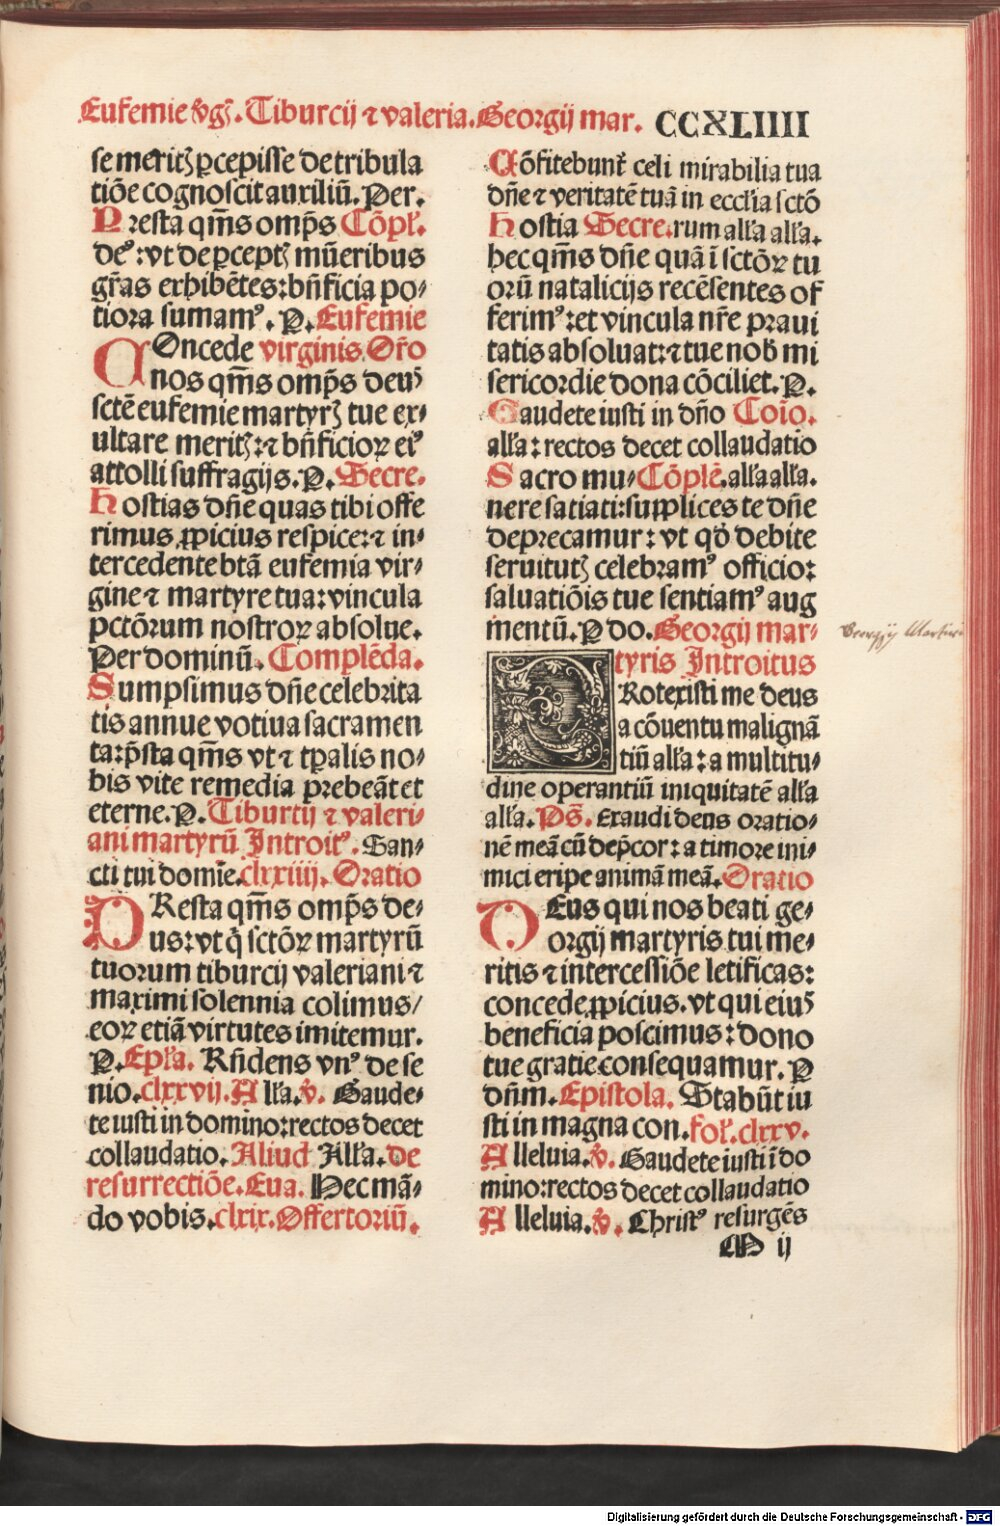 Eufemie v̄gꝭ. Tiburcij ⁊ valeria. Georgij mar. CCXLIIII
se meritꝫ ꝑcepisse de tribula
tiōe cognoscit auxiliū. Per.
Presta qm̄s omp̄s Cōpl̄.
deꝰ: vt de ꝑceptꝫ mūeribus
gr̄as exhibētes: bn̄ficia po⸗
tiora sumamꝰ. P. Eufemie
COncede virginis. Or̄o
nos qm̄s omp̄s deuꝰ
sctē eufemie martyrꝫ tue ex⸗
ultare meritꝫ: ⁊ bn̄ficioꝝ eiꝰ
attolli suffragijs. P. Secre.
Hostias dn̄e quas tibi offe
rimus ꝓpicius respice: ⁊ in⸗
tercedente btā eufemia vir⸗
gine ⁊ martyre tua: vincula
pctōrum nostroꝝ absolue.
Per dominū. Complēda.
Sumpsimus dn̄e celebrita
tis annue votiua sacramen
ta: p̄sta qm̄s vt ⁊ tꝑalis no⸗
bis vite remedia prebeāt et
eterne. P. Tiburtij ⁊ valeri⸗
ani martyrū Introitꝰ. San⸗
cti tui domīe. clxxiiij. Oratio
PResta qm̄s omp̄s de⸗
us: vt q̄ sctōꝝ martyrū
tuorum tiburcij valeriani ⁊
maximi solennia colimus/
eoꝝ etiā virtutes imitemur.
P. Epl̄a. Rn̄dens vnꝰ de se
nio. clxxvij. Alla. v̄. Gaude⸗
te iusti in domino: rectos decet
collaudatio. Aliud Alla. de
resurrectiōe. Eua. Hec mā⸗
do vobis. clxix. Offertoriū.
Cōfitebunt̄ celi mirabilia tua
dn̄e ⁊ veritatē tuā in eccl̄ia sctō
Hostia Secre. rum alla alla.
hec qm̄s dn̄e quā ī sctōꝝ tu
orū natalicijs recēsentes of
ferimꝰ: et vincula nr̄e praui
tatis absoluat: ⁊ tue nob̄ mi
sericordie dona cōciliet. P.
Gaudete iusti in dn̄o Coīo.
alla: rectos decet collaudatio
Sacro mu⸗ Cōplē. alla alla.
nere satiati: supplices te dn̄e
deprecamur: vt qd̄ debite
seruitutꝫ celebramꝰ officio:
saluatiōis tue sentiamꝰ aug
mentū. P do. Georgij mar⸗
tyris Introitus
PRotexisti me deus
a cōuentu malignā
tiū alla: a multitu⸗
dine operantiū iniquitatē alla
alla. Ps̄. Exaudi deus oratio⸗
nē meā cū dep̄cor: a timore ini⸗
mici eripe animā meā. Oratio
DEus qui nos beati ge⸗
orgij martyris tui me⸗
ritis ⁊ intercessiōe letificas:
concede ꝓpicius. vt qui eiuꝰ
beneficia poscimus: dono
tue gratie consequamur. P
dn̄m. Epistola. Stabūt iu
sti in magna con. fol̄. clxxv.
Alleluia. v̄. Gaudete iusti ī do
mino: rectos decet collaudatio
Alleluia. v̄. Christꝰ resurgēs
M ij
Georgij Martiris
Digitalisierung gefördert durch die Deutsche Forschungsgemeinschaft - DFG